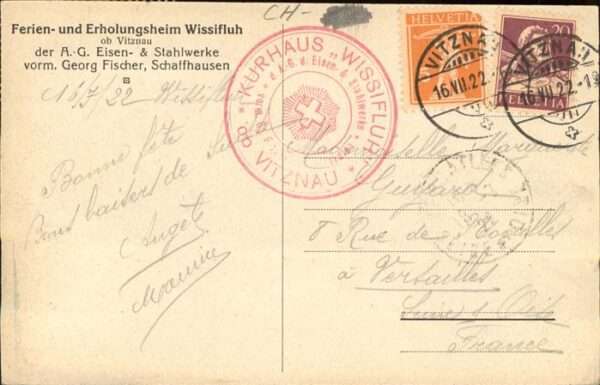 CH-
Ferien- und Erholungsheim Wissifluh
ob Vitznau
der A.-G. Eisen- & Stahlwerke
vorm. Georg Fischer, Schaffhausen
16/7/22 Wissifluh
Bonne fête
Bons baisers de
Angèle
Maurice
"KURHAUS „WISSIFLUH"
ob VITZNAU
d. A.G. d. Eisen- & Stahlwerke
HELVETIA
20
HELVETIA
VITZNAU
16.VII.22
VITZNAU
16.VII.22
Mademoiselle
Guyard
8 Rue de Noailles
à Versailles
Seine & Oise
France